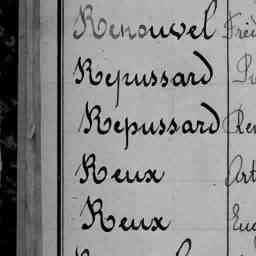 Renouvel Fréd
Repussard Pu
Repussard Ren
Reux Art
Reux Eug